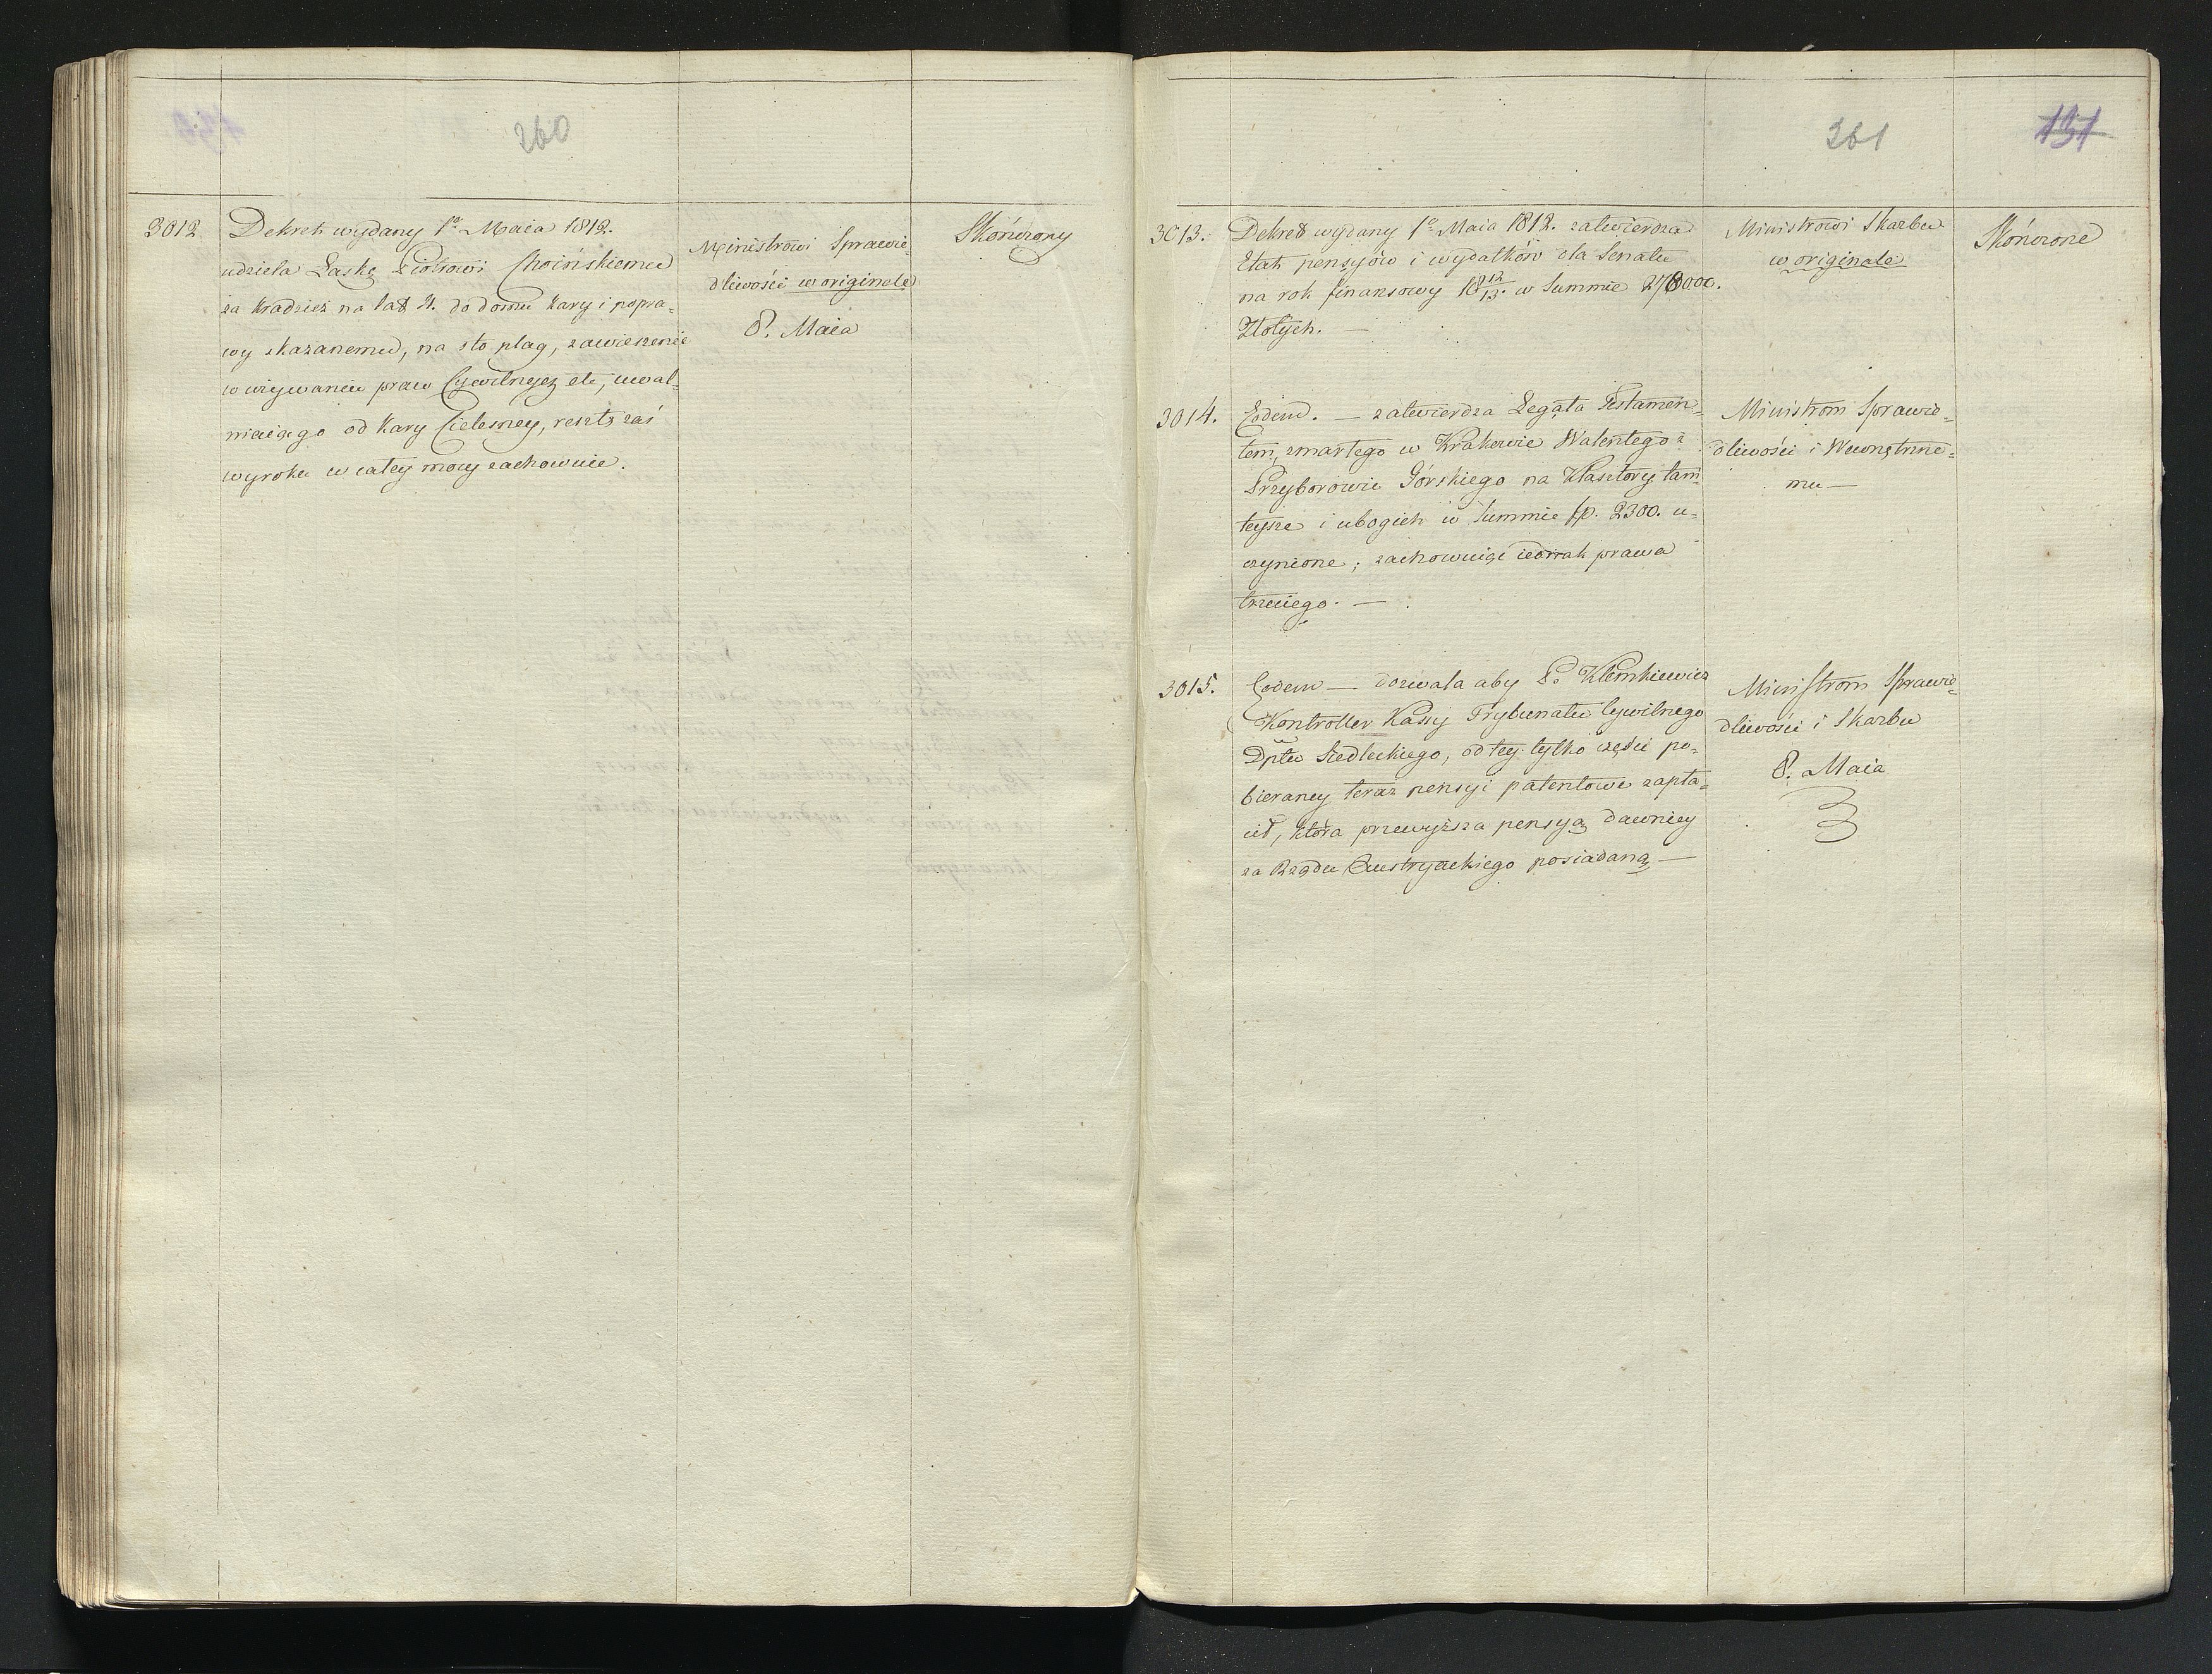 260
3012
Dekret wydany 1º Maia 1812.
udziela Łaskę Piotrowi Choińskiemu
za kradzież na lat 2. do domu kary i popra-
wy skazanemu, na sto plag, zawieszenie
w używaniu praw Cywilnych etc, uwal-
niaiąc go od kary Cielesney, resztę zaś
wyroku w całey mocy zachowuie.
Ministrowi Sprawie-
dliwości w originale
8. Maia
Skończony
261
131
3013.
Dekret wydany 1º Maia 1812. zatwierdza
Etat pensyiów i wydatków dla Senatu
na rok finansowy 18 12/13. w Summie
Złotych. —
Ministrowi Skarbu
w originale
Skończone
3014.
Eodem. — zatwierdza Legata Testamen-
tem, zmarłego w Krakowie Walentego z
Przyborowie Górskiego na Klasztory tam-
teysze i ubogich w Summie fp. 2300. u-
czynione; zachowuiąc iednak prawa
trzeciego. —
Ministrom Sprawie-
dliwości i Wewnętrzne-
mu —
3015.
Eodem — dozwala aby P. Klemkiewicz
Kontroller Kassy Trybunału Cywilnego
Dptu Siedleckiego, od tey tylko części po-
bieraney teraz pensyi patentowe zapła-
cił, która przewyższa pensyą dawniey
za Rządu Austryackiego posiadaną —
Ministrom Sprawie-
dliwości i Skarbu
8. Maia